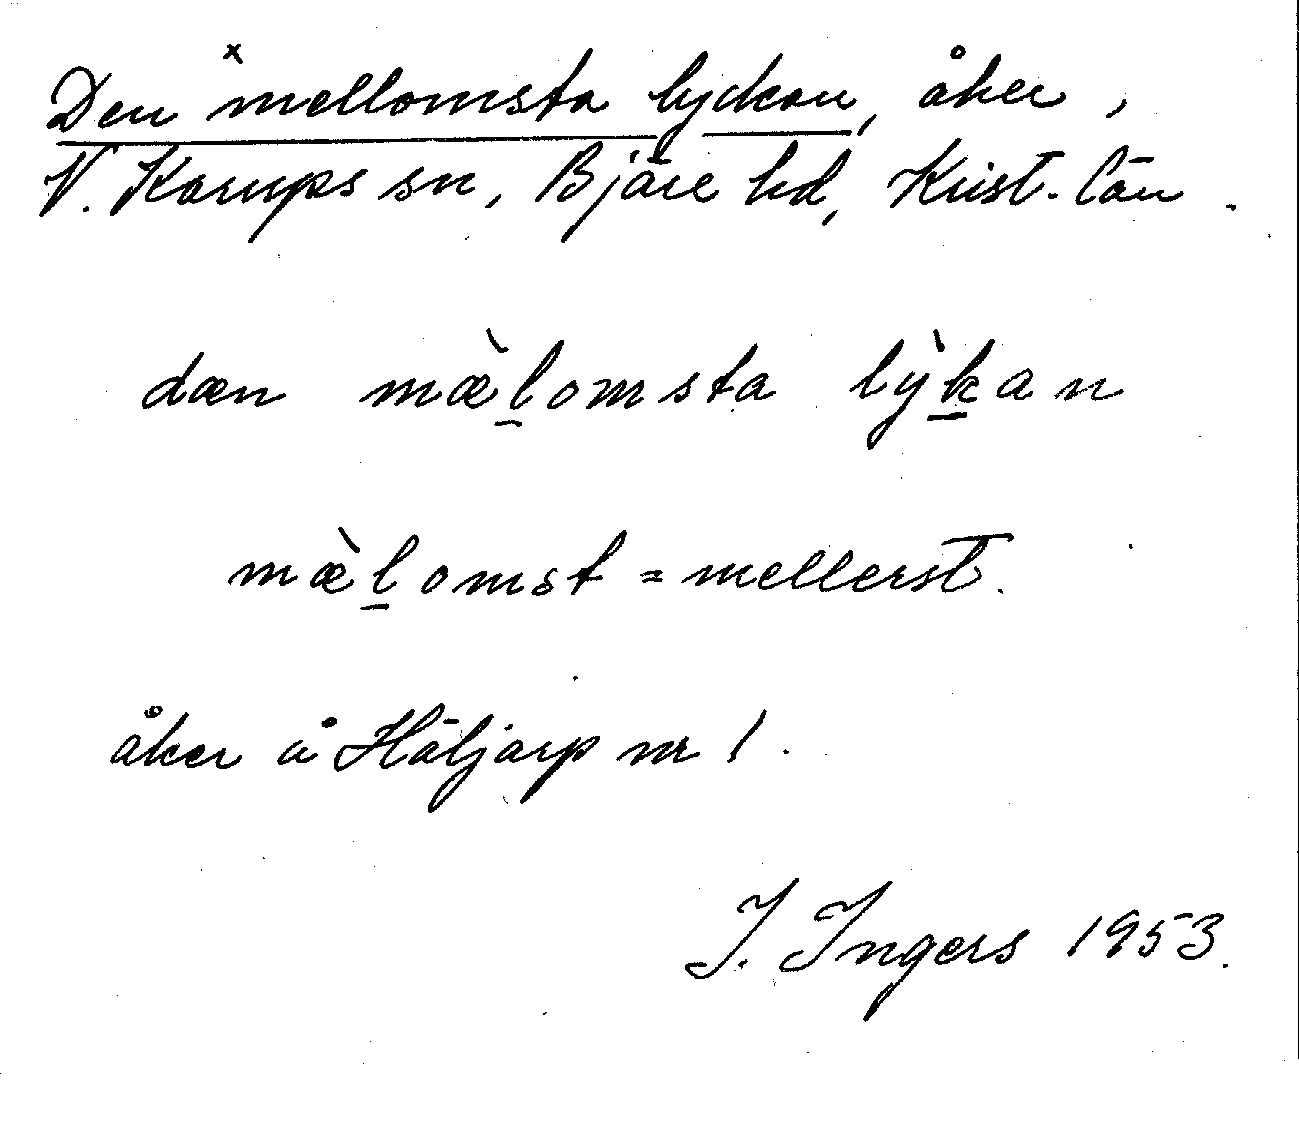 Den ˣmellomsta lyckan, åker,
V. Karups sn, Bjäre hd, Krist. län.
dæn mæ̀l̲omsta lỳk̲an
mæ̀l̲omst = mellerst.
åker å Häljarp nr 1.
I. Ingers 1953.